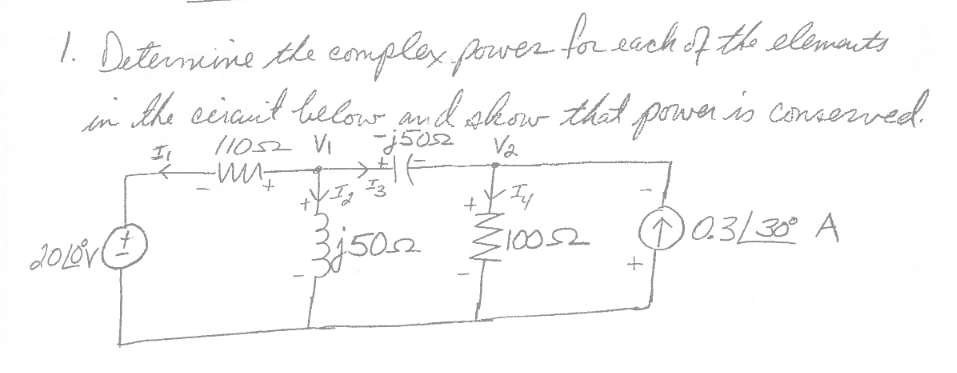 1. Determine the complex power for each of the elements
in the circuit below and show that power is conserved.
I₁ 110Ω V₁ -j50Ω V₂
- + + -
+ I₂ I₃ + I₄ -
20∠0°V + - j50Ω 100Ω ↑ 0.3∠30° A
- - +